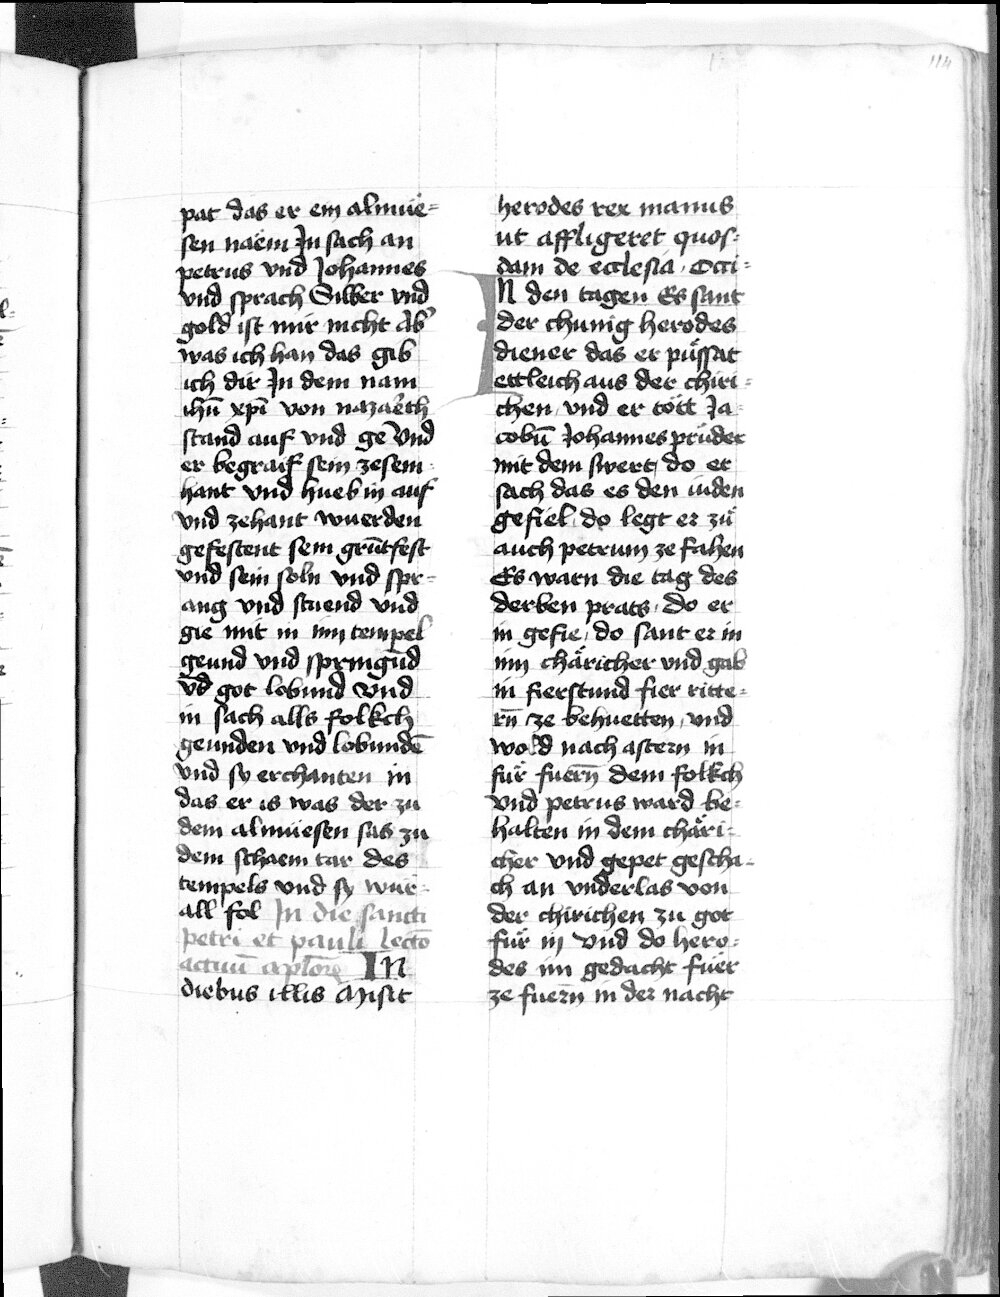 114
pat das er ein almuͤe=
sen naem In sach an
petrus vnd Johannes
vnd sprach Silber vnd
gold ist mir nicht Ab̕
was ich han das gib
ich dir In dem nam
ihū xp̄i von nazareth
stand auf vnd ge Vnd
er begraif sein zesem=
hant vnd hueb in auf
vnd zehant wuerden
gefestent sein grūtfest
vnd sein soln vnd spr=
ang vnd stuend vnd
gie mit in inn tempel
geund vnd springūd
vn̄d got lobund Vnd
in sach alls folkch
geunden vnd lobundē
vnd sy erchanten in
das er is was der zu
dem almuͤesen sas zu
dem schaem tar des
tempels vnd sy wur=
all fol In die sancti
petri et pauli lectō
actuū aplōꝝ IN
diebus illis Misit
herodes rex manus
ut affligeret quos=
dam de ecclesia, Occi=
IN den tagen Es sant
der chunig herodes
diener das er puͤssat
ettleich aus der chiri=
chen, vnd er tött Ja=
cobū Johannes pruͤder
mit dem swert, do er
sach das es den iuden
gefiel, do legt er zuͤ
auch petrum ze fahen
Es warn die tag des
derben prats, do er
in gefie, do sant er in
inn chaͤricher vnd gab
in fierstund fier ritte=
rn̄ ze behuetten, vnd
wold nach astern in
fuͤr fuern̄ dem folkch
Vnd petrus ward be=
halten in dem chaͤri=
cher vnd gepet gescha=
ch an vnderlas von
der chirichen zu got
fuͤr in Vnd do hero=
des im gedacht fuͤer
ze fuern̄ in der nacht